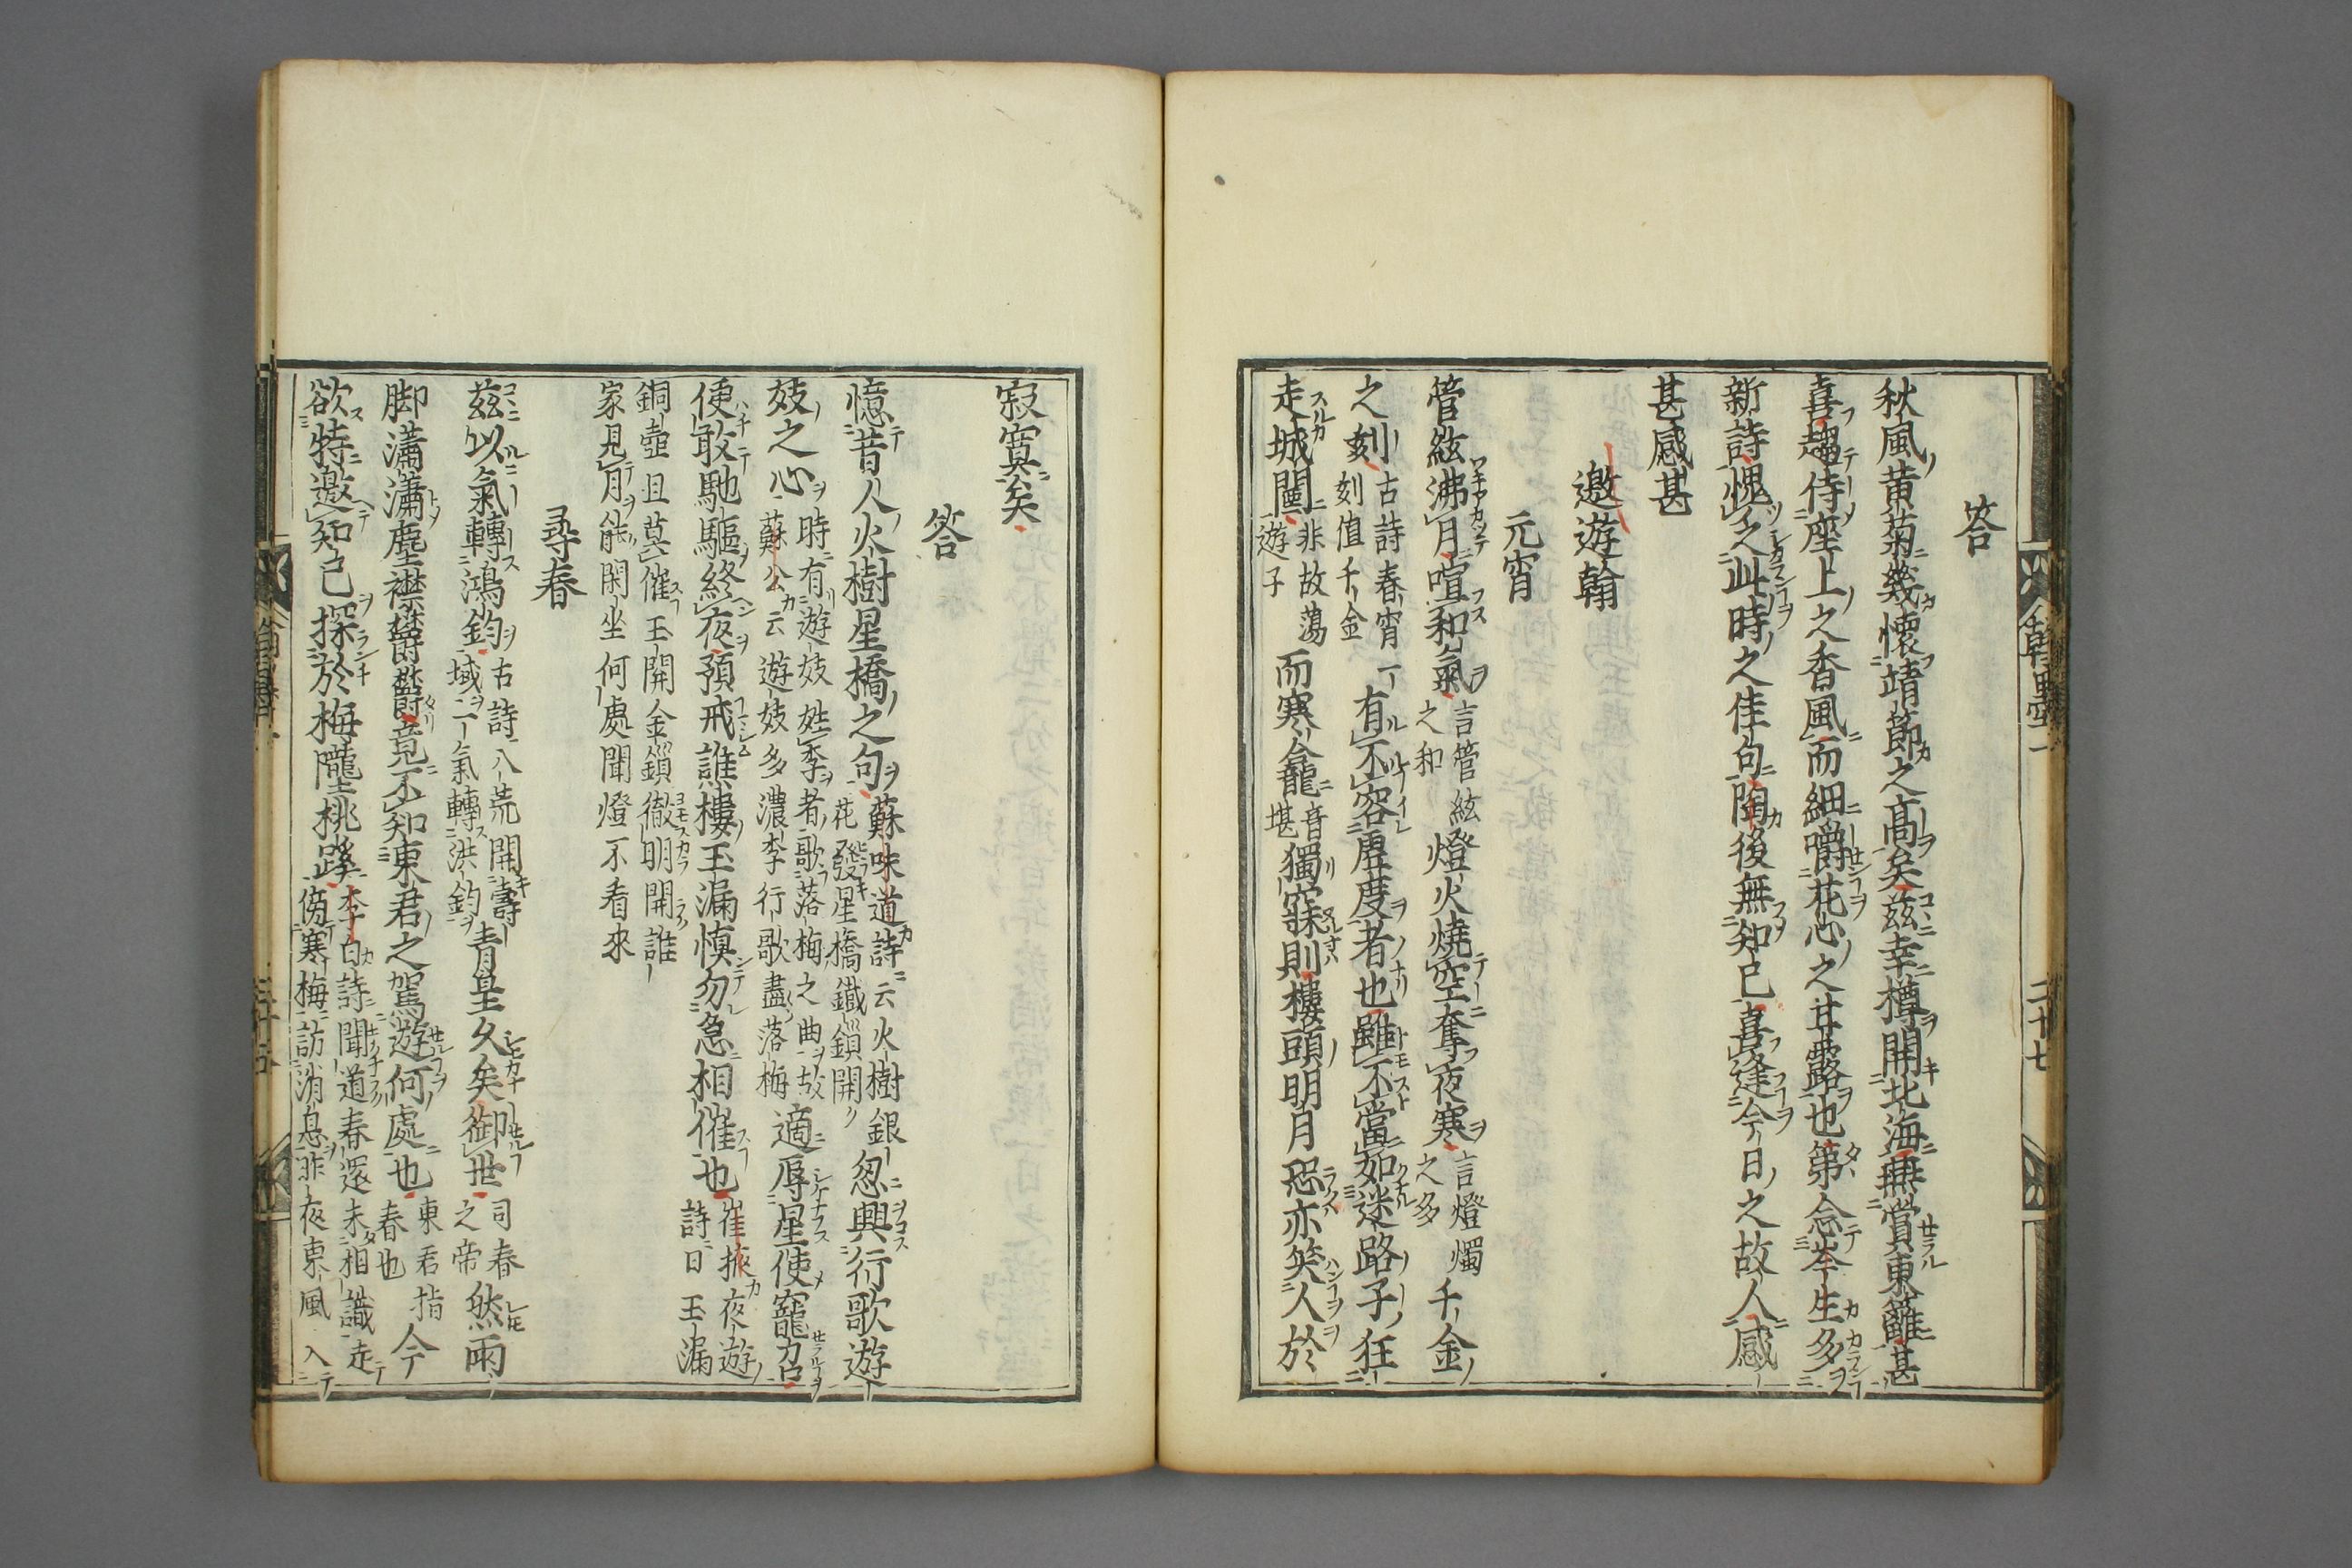 答
秋風黄菊幾懷靖節之高矣茲幸樽開北海無賞東籬甚
喜趨侍座上之香風而細嚼花心之甘露也第念苯生多
新詩愧之此時之佳句陶後無知已喜逢今日之故人感
甚感甚
邀遊翰
元宵
管絃沸月喧和氣言管絃之和燈火燒空奪夜寒言燈燭之多千金
之刻古詩春宵一刻值千金有不容虛度者也雖不當如迷路子狂
走城闉非故蕩遊子而寒龕音堪獨寐則樓頭明月恐亦笑人於
寂寞矣
答
憶昔人火樹星橋之句蘇味道詩云火樹銀花發星橋鐵鎖開忽興行歌遊
妓之心時有遊妓姓季者歌落梅之曲故蘇公云遊妓多濃李行歌盡落梅適辱星使寵召
便敢馳驅終夜預戒譙樓玉漏慎勿急相催也崔掖夜遊詩曰玉漏
銅壺且莫催玉開金鎖徹明開誰
家見月能閑坐何處聞燈不看來
尋春
茲以氣轉鴻鈞古詩八荒開壽域一氣轉洪鈞青皇久矣御世司春之帝然雨
脚瀟瀟塵襟欝欝竟不知東君之駕遊何處也東君指春也今
欲特邀知己探於梅隴桃蹊李白詩聞道春還未相識走傍寒梅訪消息昨夜東風入
翰墨 二十七